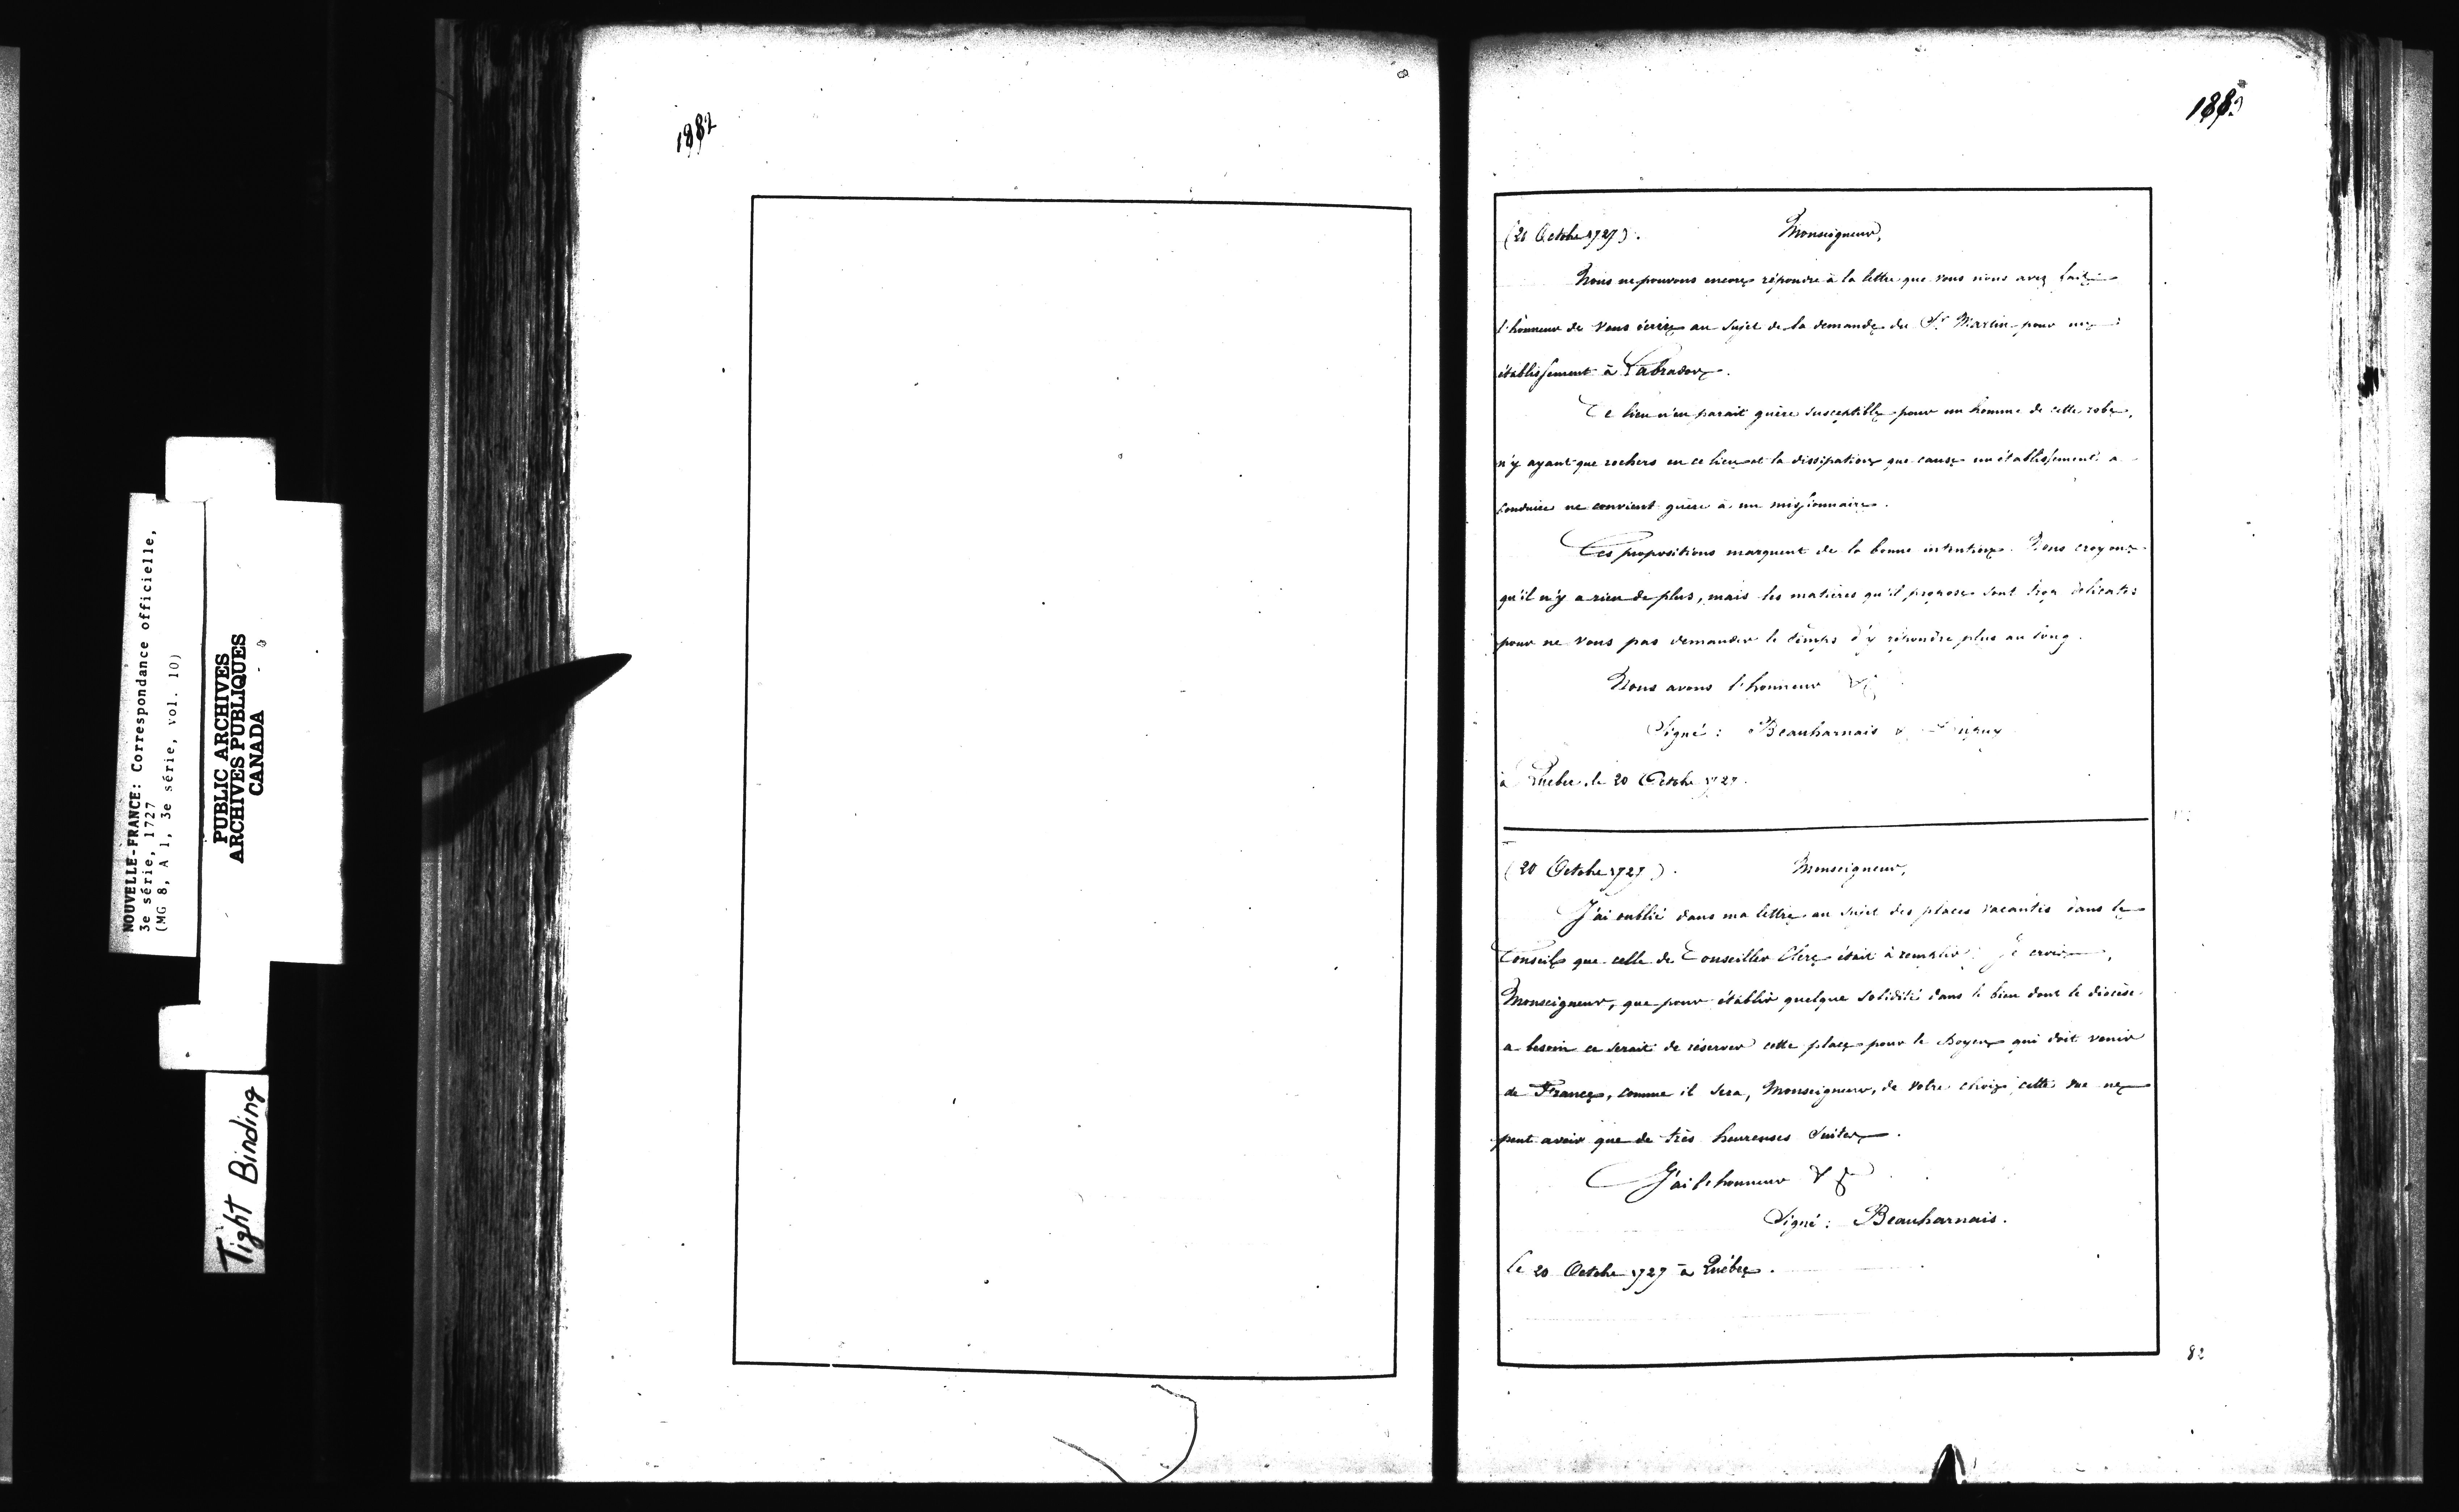 NOUVELLE-FRANCE: Correspondance officielle,
3e série, 1727
(MG 8, A 1, 3e série, vol. 10)
PUBLIC ARCHIVES
ARCHIVES PUBLIQUES
CANADA
Tight Binding
1882
1883
(20 Octobre 1727). Monseigneur,
Nous ne pouvons encore répondre à la lettre que vous nous avez fait
l'honneur de nous écrire au sujet de la demande du Sr. Martin pour un
établissement à Labrador.
Ce lieu n'en parait guère susceptible pour un homme de cette robe,
n'y ayant que rochers en ce lieu et la dissipation que cause un établissement a
conduire ne convient guère à un missionnaire.
Ces propositions marquent de la bonne intention. Nous croyons
qu'il n'y a rien de plus, mais les matières qu'il propose sont trop délicates
pour ne vous pas demander le temps d'y répondre plus au long.
Nous avons l'honneur &
Signé: Beauharnais &
à Québec, le 20 Octobre 1727.
(20 Octobre 1727). Monseigneur,
J'ai oublié dans ma lettre au sujet des places vacantes dans le
Conseil que celle de Conseiller Clerc était à remplir. Je crois,
Monseigneur, que pour établir quelque solidité dans le bien dont le diocèse
a besoin ce serait de réserver cette place pour le Doyen qui doit venir
de France, comme il sera, Monseigneur, de votre choix cette vue ne
peut avoir que de très heureuses suites.
J'ai l'honneur &
Signé: Beauharnais.
Le 20 Octobre 1727 à Québec.
82